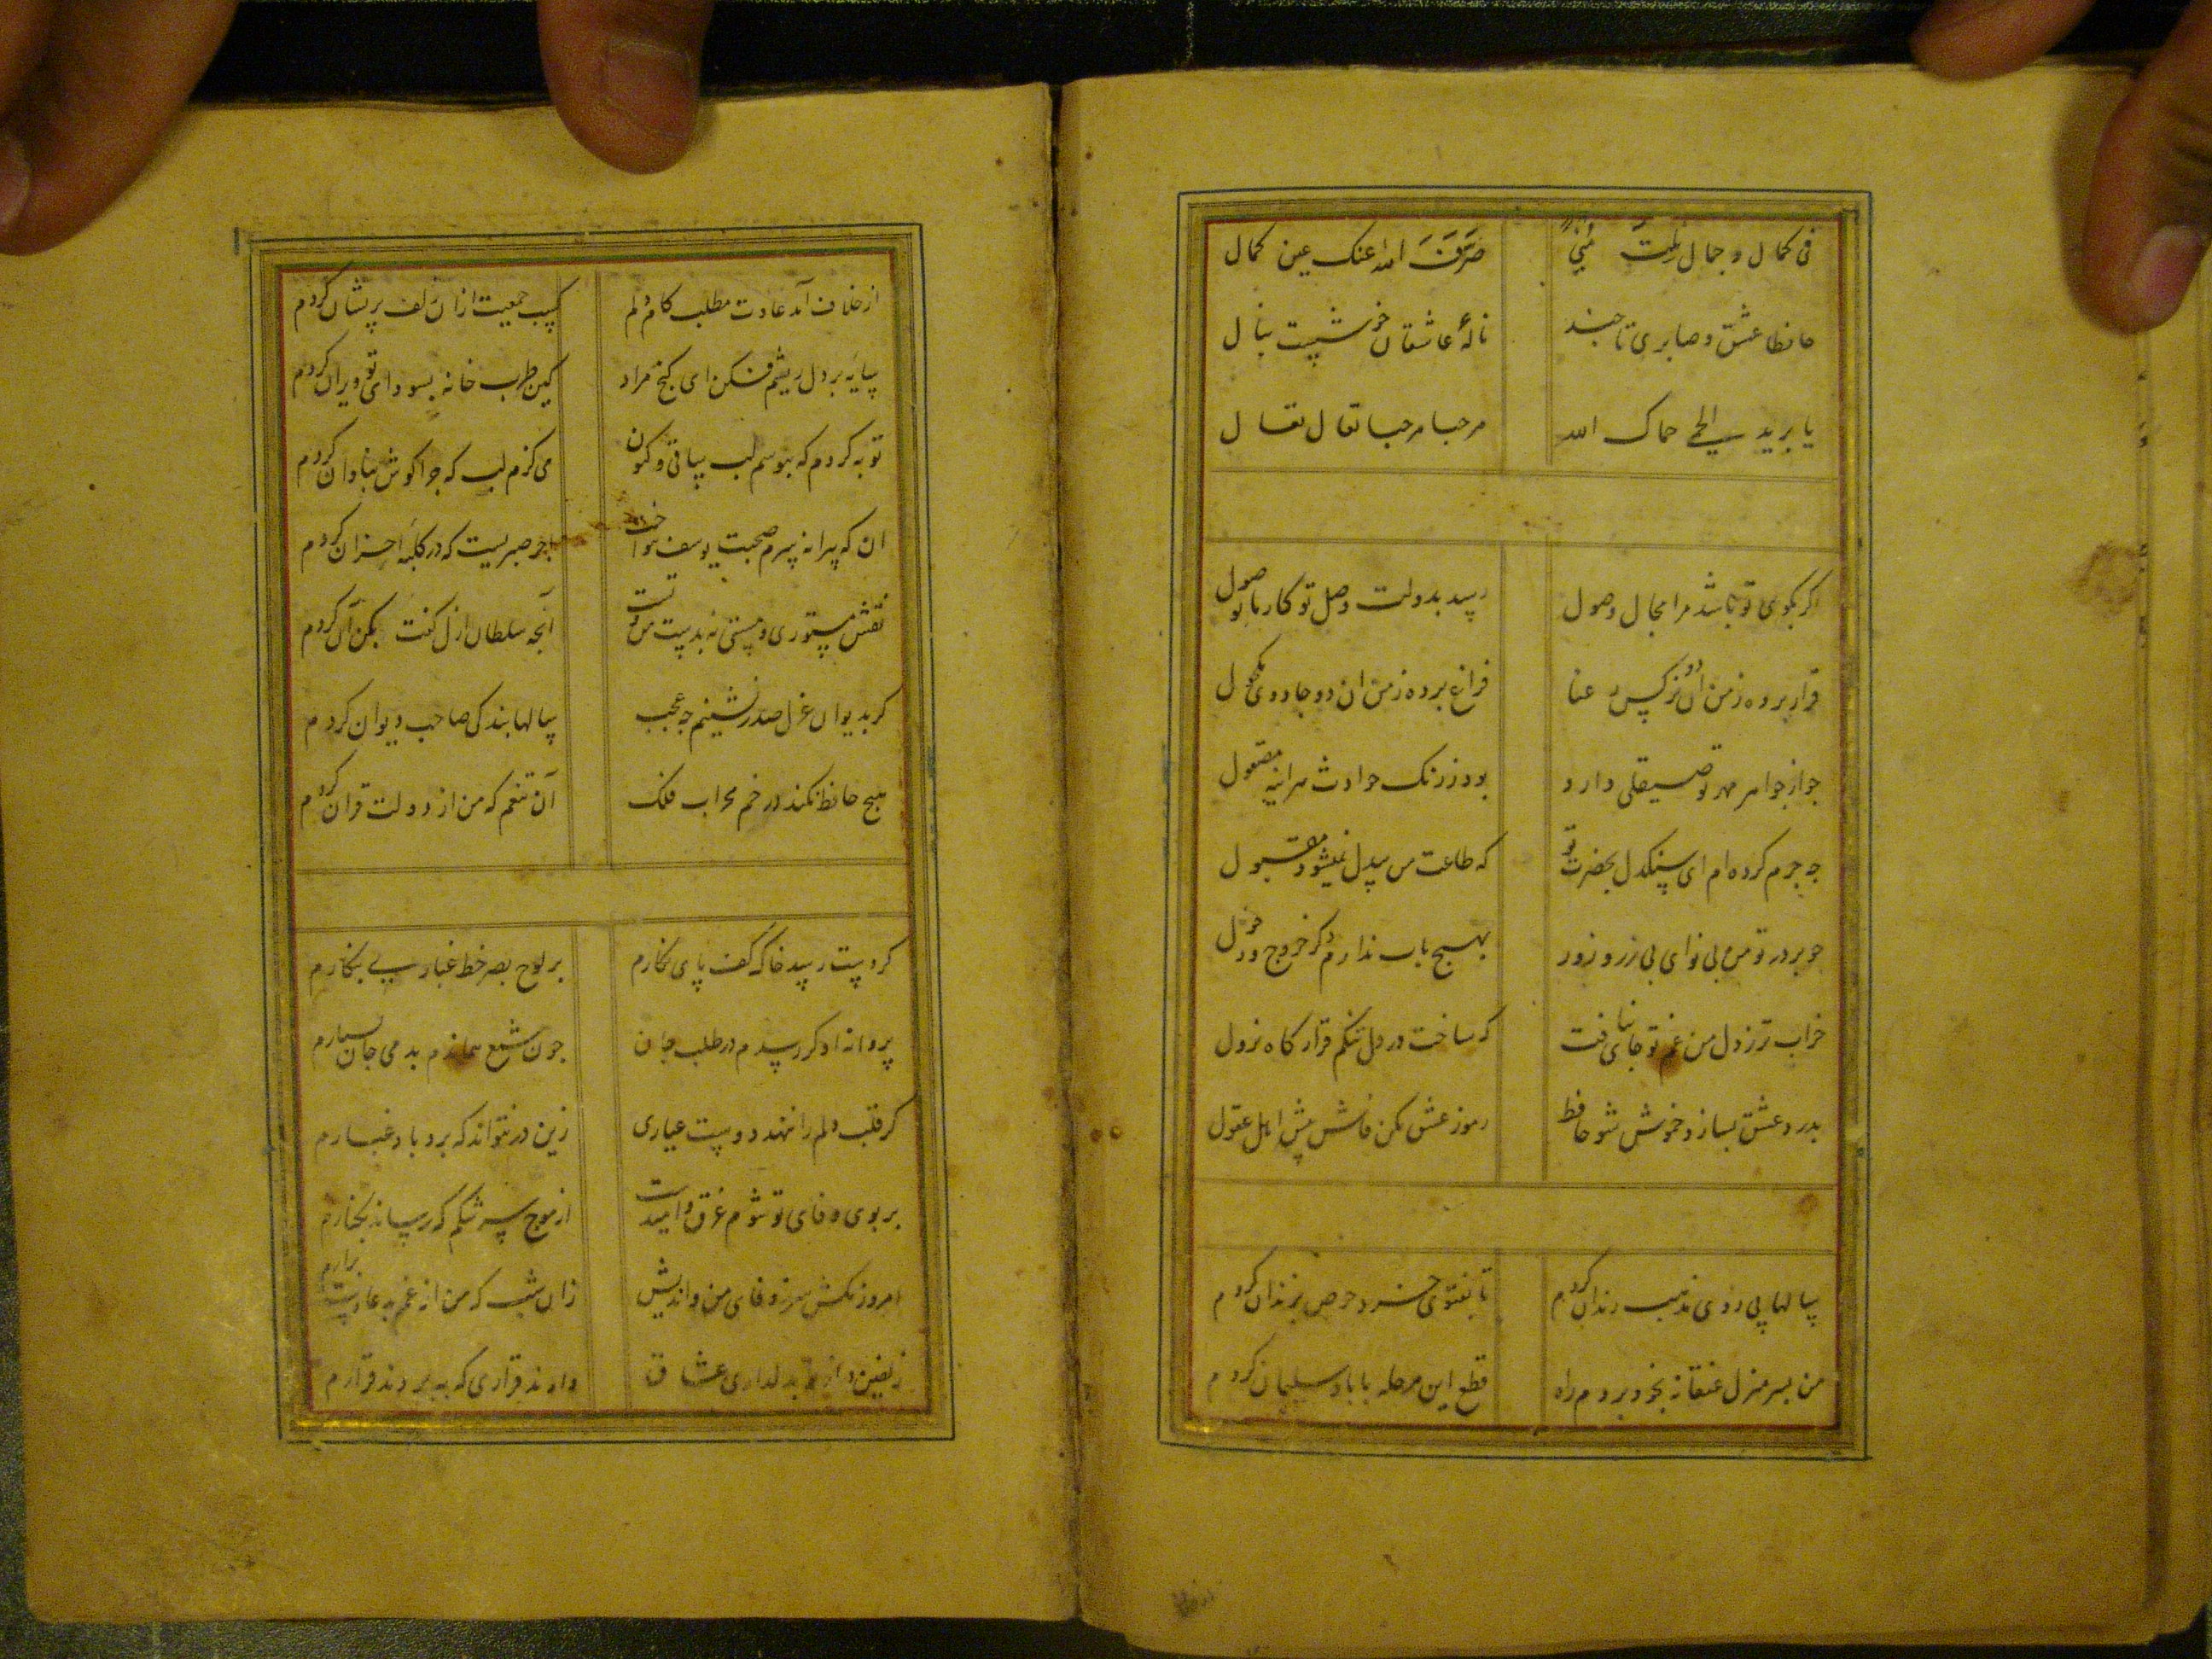 فی کمال و جمال نلت منی
صرف الله عنک عین کمال
حافظا عشق و صابری تا چند
نالهٔ عاشقان خوشست بنال
یا برید الحمی حماک الله
مرحبا مرحبا تعال تعال
اگر بکوی تو باشد مرا مجال وصول
رسد بدولت وصل تو کار ما بوصول
قرار برده ز من آن دو نرکس رعنا
فراغ برده ز من ان دو جادوی مکحول
جو از جواهر مهر تو صیقلی دارد
بود ز زنک حوادث هر اینه مصقول
جه جرم کرده‌ام ای سنکدل بحضرت تو
که طاعت من بیدل نمیشود مقبول
جو بر در تو من بی نوای بی زر و زور
بهیچ باب ندارم دکر خروج و دخول
خراب تر ز دل من غم تو جای نیافت
که ساخت در دل تنکم قرارکاه نزول
بدرد عشق بساز و خموش شو حافظ
رموز عشق مکن فاش پیش اهل عقول
سالها پی روی مذهب رندان کردم
تا بفتوی خرد حرص بزندان کردم
من بسر منزل عنقا نه بخود بردم راه
قطع این مرحله با باد سلیمان کردم
از خلاف آمد عادت مطلب کام دلم
کسب جمعیت ازان زلف پریشان کردم
سایه بر دل ریشم فکن ای کنج مراد
کین طرب خانه بسودای تو ویران کردم
توبه کردم که ببوسم لب ساقی و کنون
می کزم لب که جرا کوش بنادان کردم
ان که پیرانه سرم صحبت یوسف بنواخت
اجر صبریست که در کلبه احزان کردم
نقش مستوری و مستی نه بدست من و تست
آنجه سلطان ازل کفت بکن آن کردم
کر بدیوان غزل صدر نشینم جه عجب
سالها بندکی صاحب دیوان کردم
هیچ حافظ نکند در خم محراب فلک
آن تنعم که من از دولت قران کردم
کر دست رسد خاک کف پای نکارم
بر لوح بصر خط غباری بنکارم
پروانه او کر رسدم در طلب جان
جون شمع هماندم بدمی جان بسپارم
کر قلب دلم را ننهد دوست عیاری
زین در نتواند که برد باد غبارم
بر بوی وفای تو شوم غرق و امیدست
از موج سرشکم که رساند بکنارم
امروز مکش سر ز وفای من و اندیش
زان شب که من از غم به دعا دست برارم
زلفین بدلداری عشاق
دادند قراری که ببردند قرارم